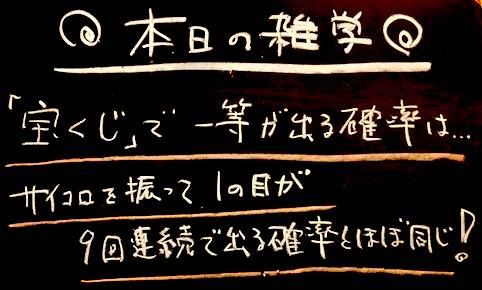 本日の雑学
「宝くじ」で一等が出る確率は...
サイコロを振って1の目が
9回連続で出る確率とほぼ同じ!